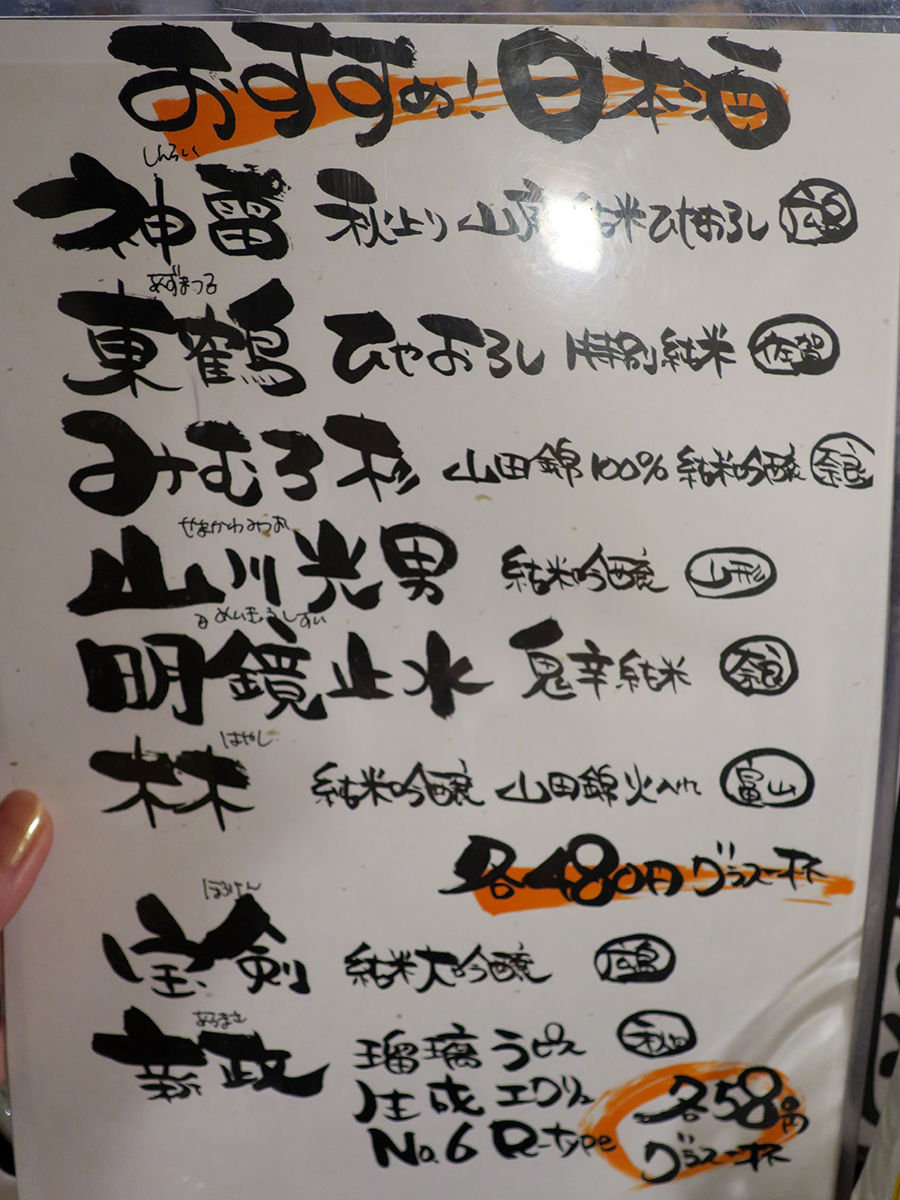 おすすめ!日本酒
しんらい
神雷 秋上り 山廃純米ひやおろし 広島
あずまつる
東鶴 ひやおろし 特別純米 佐賀
みむろ杉 山田錦100% 純米吟醸 奈良
やまかわみつお
山川光男 純米吟醸 山形
めいきょうしすい
明鏡止水 鬼辛純米 奈良
はやし
林 純米吟醸 山田錦火入れ 富山
各480円グラス一杯
ほうけん
宝剣 純米大吟醸 広島
あらまさ
新政 瑠璃 秋田
生成 エクリュ
No.6 R-type
各580円
グラス一杯